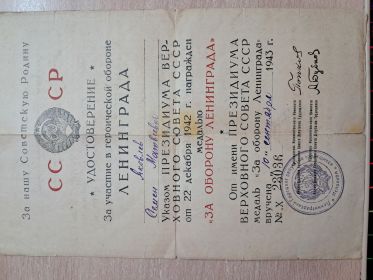 За нашу Советскую Родину
СССР
★ УДОСТОВЕРЕНИЕ ★
За участие в героической обороне
ЛЕНИНГРАДА
Яковлев
Семен Матвеевич
Указом ПРЕЗИДИУМА ВЕР-
ХОВНОГО СОВЕТА СССР
от 22 декабря 1942 г. награжден
медалью
«ЗА ОБОРОНУ ЛЕНИНГРАДА»
★
От имени ПРЕЗИДИУМА
ВЕРХОВНОГО СОВЕТА СССР
медаль «За оборону Ленинграда»
вручена 10 сентября 1943 г.
№ X 23036